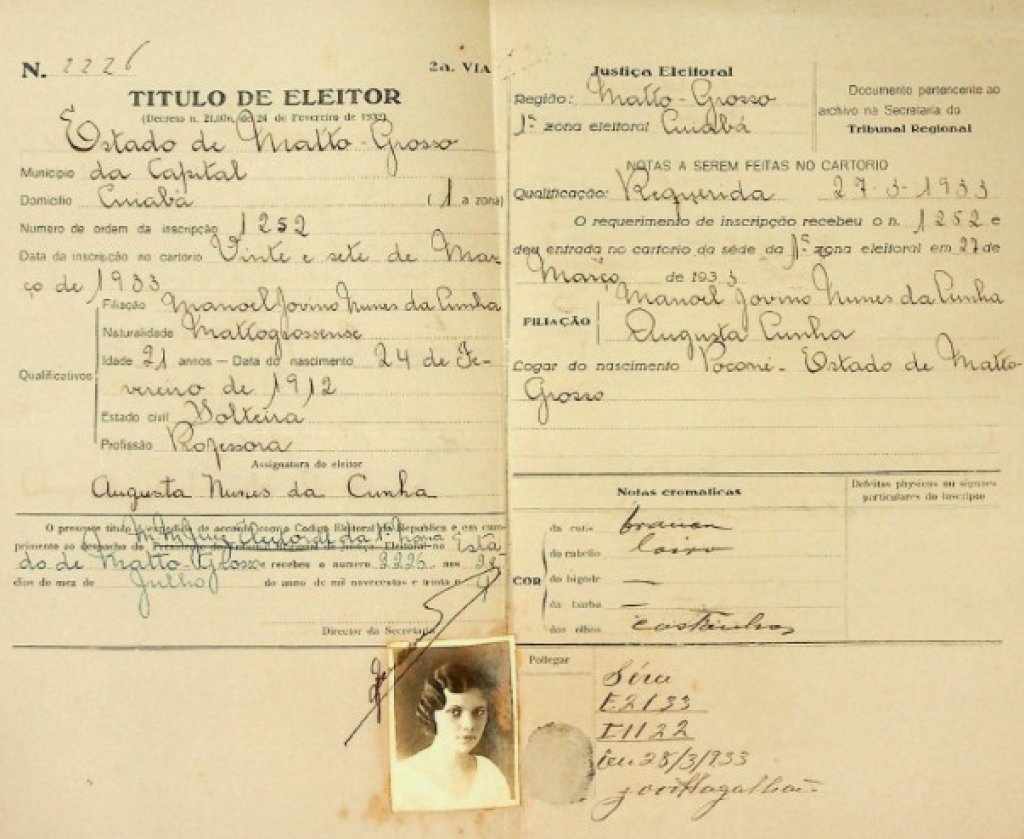 N. 2226
2a. VIA
TITULO DE ELEITOR
(Decreto n. 21.076, de 24 de Fevereiro de 1932)
Estado de Matto-Grosso
Municipio da Capital
Domicilio Cuiabá (1 a zona)
Numero de ordem da inscripção 1252
Data da inscripção no cartorio Vinte e sete de Mar-
ço de 1933
Qualificativos
Filiação Manoel Jovino Nunes da Cunha
Naturalidade Mattogrossense
Idade 21 annos — Data do nascimento 24 de Fe-
vereiro de 1912
Estado civil Solteira
Profissão Professora
Assignatura do eleitor
Augusta Nunes da Cunha
O presente titulo é expedido de accordo com o Codigo Eleitoral da Republica e em cum-
primento ao despacho do M. M. Juiz Eleitoral da 1ª Zona Esta-
do de Matto-Grosso e recebeu o numero 2226, aos 28
dias do mez de Julho do anno de mil novecentos e trinta e
Director da Secretaria
Justiça Eleitoral
Região: Matto-Grosso
1ª zona eleitoral Cuiabá
Documento pertencente ao
archivo na Secretaria do
Tribunal Regional
NOTAS A SEREM FEITAS NO CARTORIO
Qualificação: Requerida 27-3-1933
O requerimento de inscripção recebeu o n. 1252 e
deu entrada no cartorio da séde da 1ª zona eleitoral em 27 de
Março de 1933
FILIAÇÃO
Manoel Jovino Nunes da Cunha
Augusta Cunha
Logar do nascimento Poconé - Estado de Matto-
Grosso
Notas cromaticas
Defeitos physicos ou signaes
particulares do inscripto
COR
da cutis branca
do cabello loiro
do bigode —
da barba —
dos olhos castanhos
Pollegar
Série
E2133
I1122
em 28/3/933